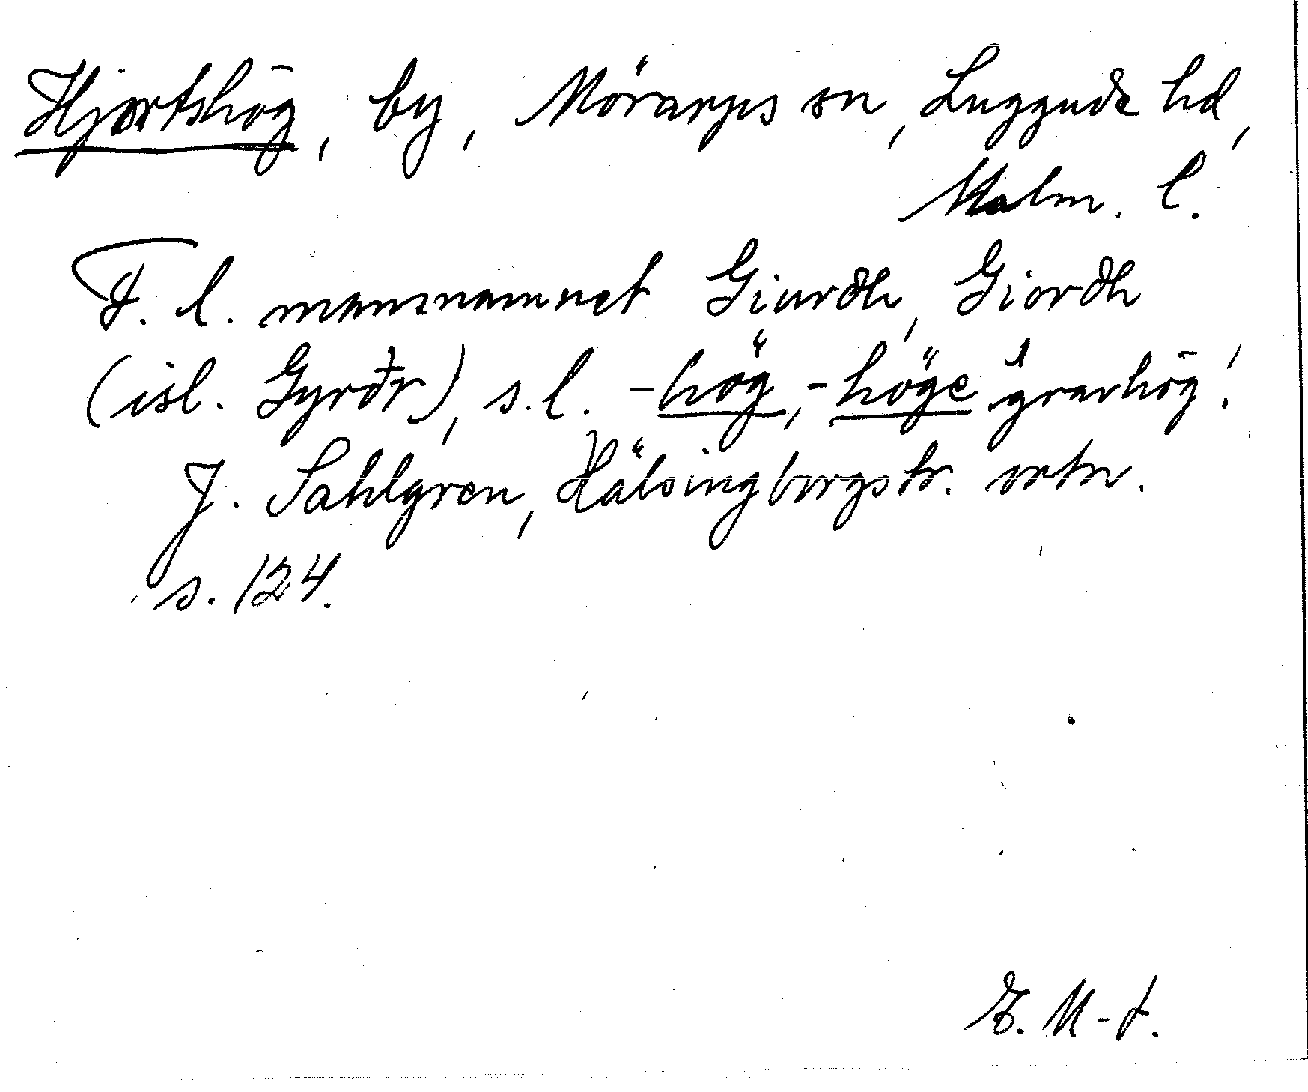 Hjortshög, by, Mörarps sn, Luggude hd,
Malm. l.
F. l. mansnamnet Giurdh, Giordh
(isl. Gyrðr), s. l. -hög, -höge 'gravhög'.
J. Sahlgren, Hälsingborgstr. ortn.
s. 124.